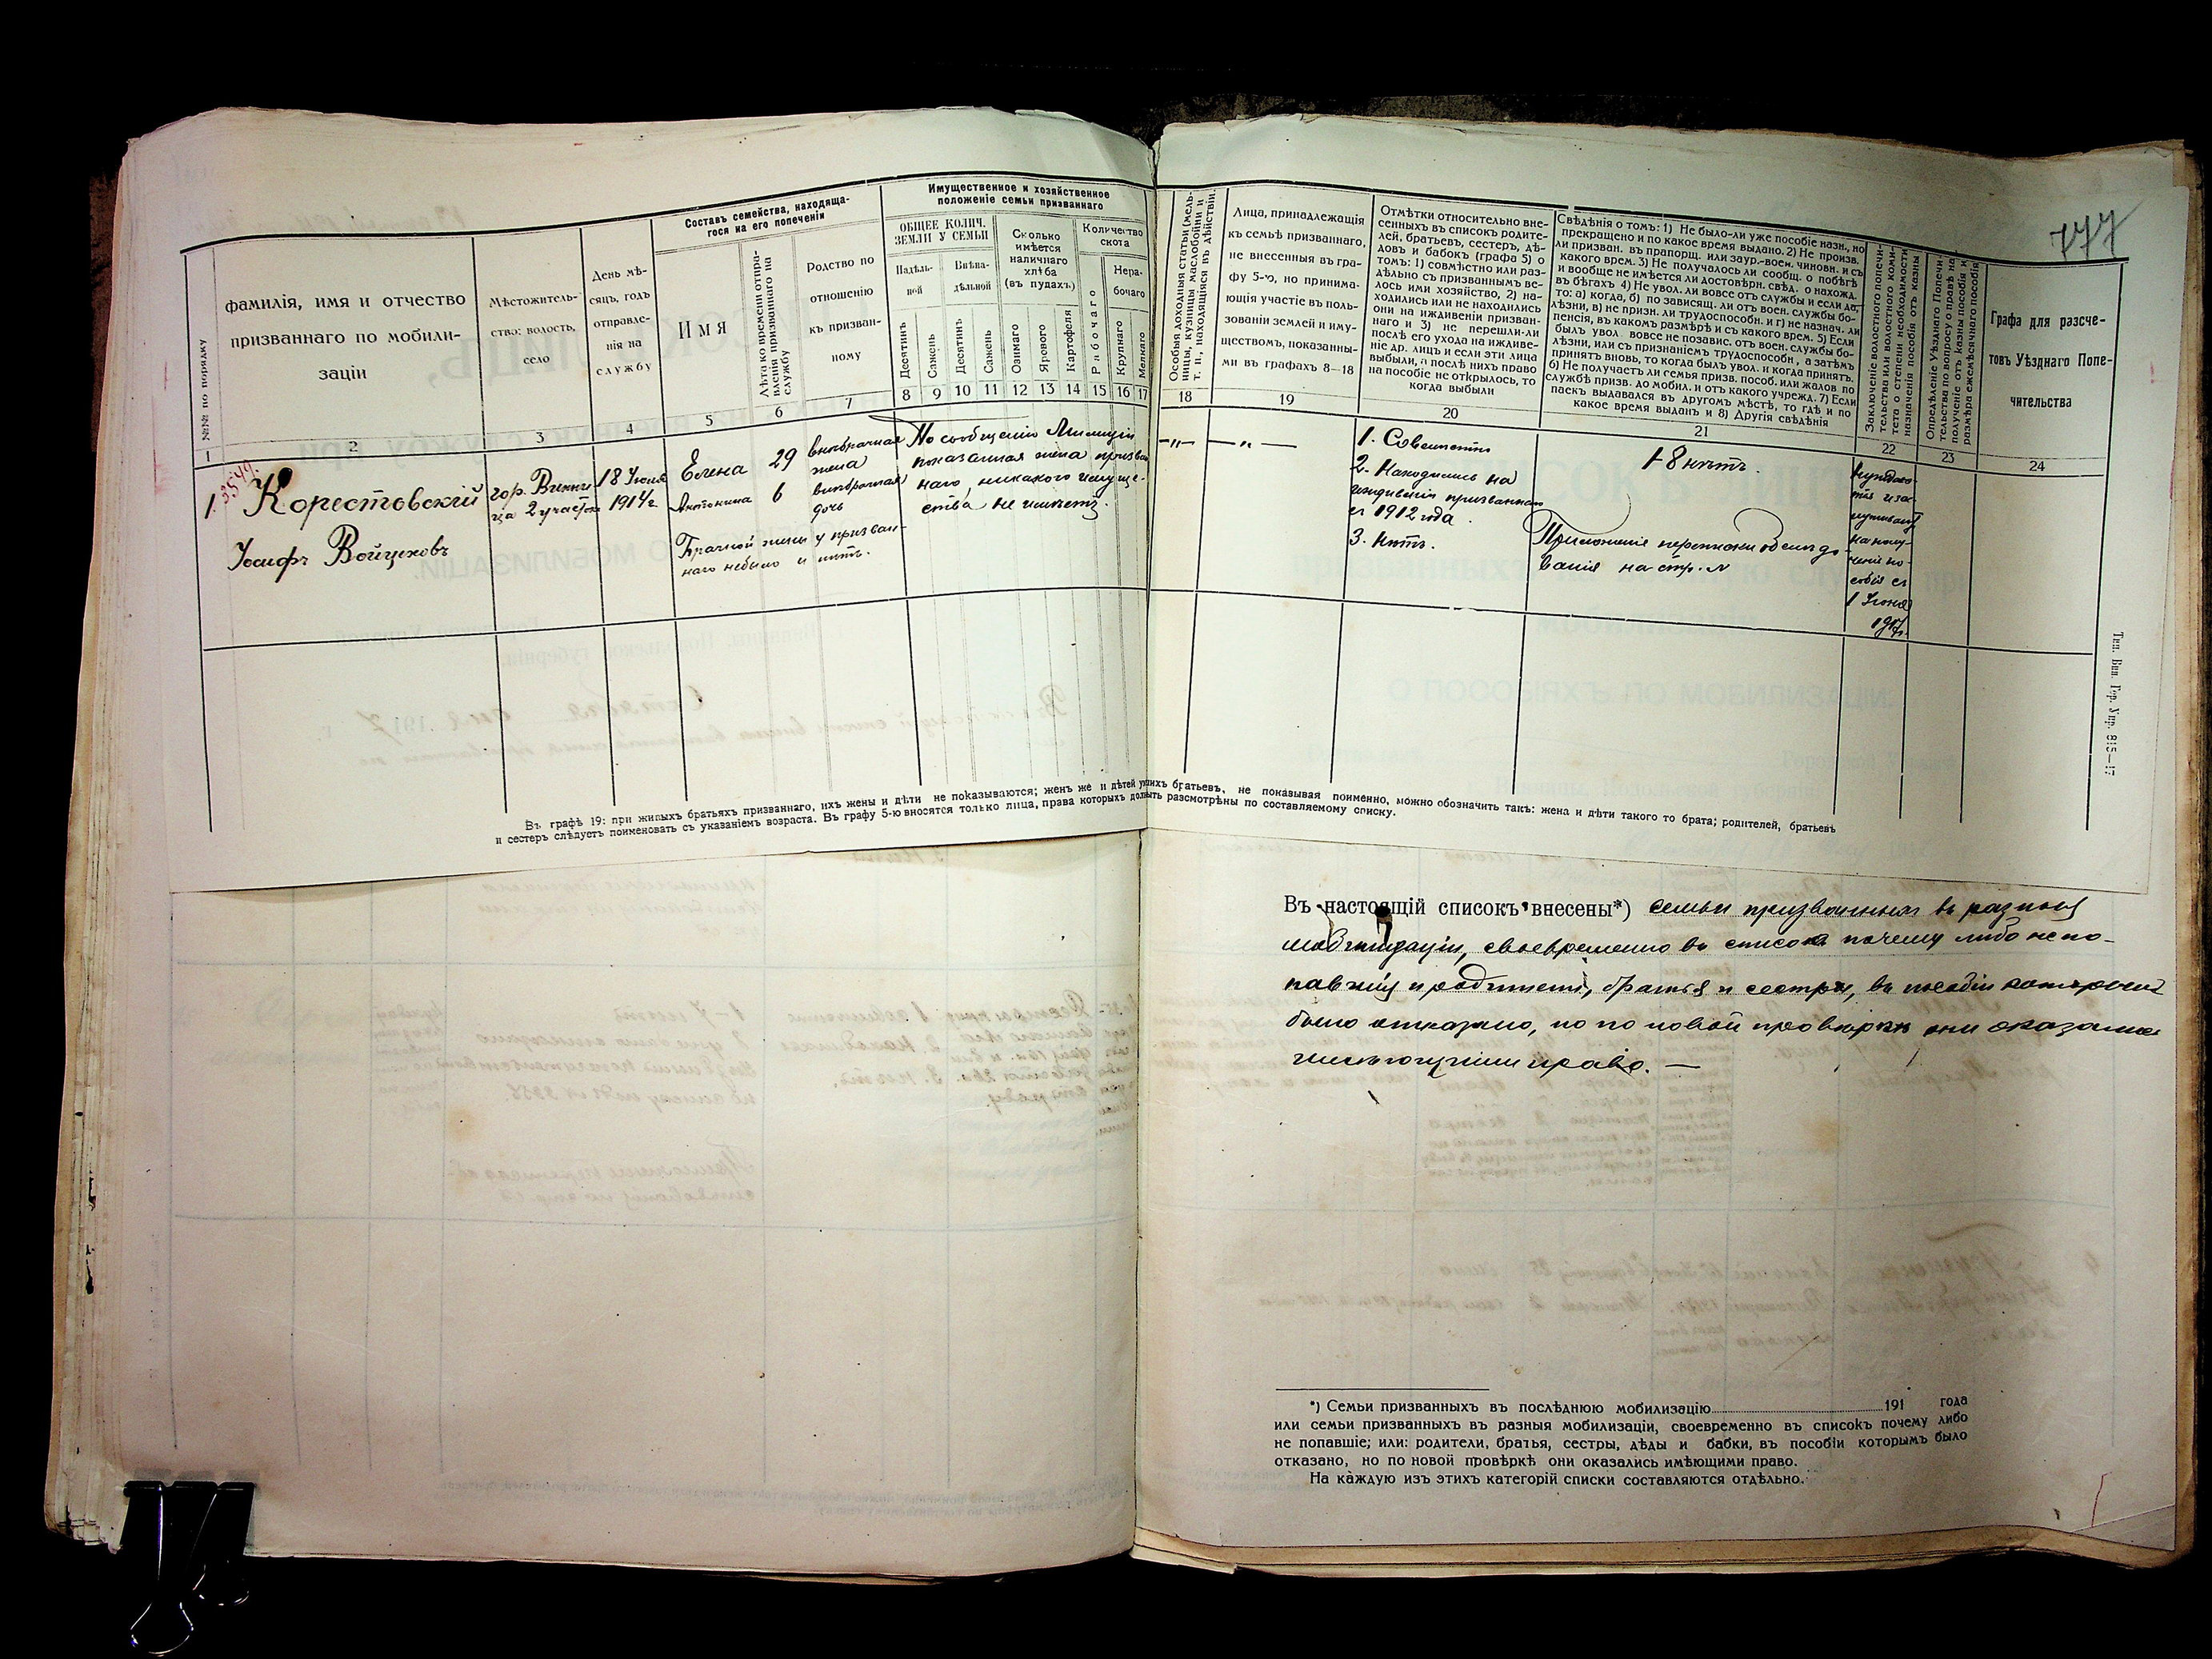 777
Составъ семейства, находяща-
гося на его попеченіи
Имущественное и хозяйственное
положеніе семьи призваннаго
№№ по порядку
фамилія, имя и отчество
призваннаго по мобили-
заціи
Мѣстожитель-
ство: волость,
село
День мѣ-
сяцъ, годъ
отправле-
нія на
службу
Имя
Лѣта ко времени отпра-
вленія призваннаго на
службу
Родство по
отношенію
къ призван-
ному
ОБЩЕЕ КОЛИЧ.
ЗЕМЛИ У СЕМЬИ
Надѣль-
ной
Внѣна-
дѣльной
Десятинъ
Сажень
Десятинъ
Сажень
Сколько
имѣется
наличнаго
хлѣба
(въ пудахъ)
Озимаго
Ярового
Картофеля
Количество
скота
Рабочаго
Нера-
бочаго
Крупнаго
Мелкаго
1 2 3 4 5 6 7 8 9 10 11 12 13 14 15 16 17
Особыя доходныя статьи (мель-
ницы, кузницы маслобойни и
т. п., находящіеся въ дѣйствіи.
Лица, принадлежащія
къ семьѣ призваннаго,
не внесенныя въ гра-
фу 5-ю, но принима-
ющія участіе въ поль-
зованіи землей и иму-
ществомъ, показанны-
ми въ графахъ 8—18
Отмѣтки относительно вне-
сенныхъ въ списокъ родите-
лей, братьевъ, сестеръ, дѣ-
довъ и бабокъ (графа 5) о
томъ: 1) совмѣстно или раз-
дѣльно съ призваннымъ ве-
лось ими хозяйство, 2) на-
ходились или не находились
они на иждивеніи призван-
наго и 3) не перешли-ли
послѣ его ухода на иждиве-
ніе др. лицъ и если эти лица
выбыли, а послѣ нихъ право
на пособіе не открылось, то
когда выбыли
Свѣдѣнія о томъ: 1) Не было-ли уже пособіе назн., но
прекращено и по какое время выдано. 2) Не произв.
ли призван. въ прапорщ. или заур.-воен. чиновн. и съ
какого врем. 3) Не получалось ли сообщ. о побѣгѣ
и вообще не имѣется ли достовѣрн. свѣд. о нахожд.
въ бѣгахъ 4) Не увол. ли вовсе отъ службы и если да,
то: а) когда, б) по зависящ. ли отъ воен. службы бо-
лѣзни, в) не призн. ли трудоспособн. и г) не назнач. ли
пенсія, въ какомъ размѣрѣ и съ какого врем. 5) Если
былъ увол вовсе не позавис. отъ воен. службы бо-
лѣзни, или съ признаніемъ трудоспособн, а затѣмъ
принятъ вновь, то когда былъ увол. и когда принятъ.
6) Не получаетъ ли семья призв. пособ. или жалов по
службѣ призв. до мобил. и отъ какого учрежд. 7) Если
паекъ выдавался въ другомъ мѣстѣ, то гдѣ и по
какое время выданъ и 8) Другія свѣдѣнія
Заключеніе волостного попечи-
тельства или волостного коми-
тета о степени необходимости
назначенія пособія отъ казны
Опредѣленіе Уѣзднаго Попечи-
тельства по вопросу о правѣ на
полученіе отъ казны пособія и
размѣра ежемѣсячнаго пособія
Графа для разсче-
товъ Уѣзднаго Попе-
чительства
18 19 20 21 22 23 24
3549.
1 Корестовскій
Іосифъ Войцеховъ
гор. Винни-
ца 2 участок
18 Іюля
1914 г.
Елена 29 внѣбрачная
жена
Антонина 6 внѣбрачная
дочь
Брачной жены у призван-
наго небыло и нѣтъ.
По сообщенію Милиціи
показанная жена призван
наго никакого имуще-
ства не имѣетъ.
—"— — " —
1. Совместно
2. Находились на
иждивеніи призваннаго
съ 1912 года.
3. Нѣтъ.
1-8 нѣтъ.
Приложение переписки обслѣдо-
ванія на стр. №
1 Іюня
1917 г.
Въ графѣ 19: при жилыхъ братьяхъ призваннаго, ихъ жены и дѣти не показываются; женъ же и дѣтей умшихъ братьевъ, не показывая поименно, можно обозначить такъ: жена и дѣти такого то брата; родителей, братьевъ
и сестеръ слѣдуетъ поименовать съ указаніемъ возраста. Въ графу 5-ю вносятся только лица, права которыхъ должны быть разсмотрѣны по составляемому списку.
Тип. Вин. Гор. Упр. 815—17
Въ настоящій списокъ внесены*) семьи призванныхъ въ разныя
мобилизаціи, своевременно въ списокъ почему либо непо-
павшія и родители, братья и сестры, въ пособіи которымъ
было отказано, но по новой провѣркѣ они оказались
имѣющими право. —
*) Семьи призванныхъ въ послѣднюю мобилизацію 191 года
или семьи призванныхъ въ разныя мобилизаціи, своевременно въ списокъ почему либо
не попавшіе; или: родители, братья, сестры, дѣды и бабки, въ пособіи которымъ было
отказано, но по новой провѣркѣ они оказались имѣющими право.
На каждую изъ этихъ категорій списки составляются отдѣльно.